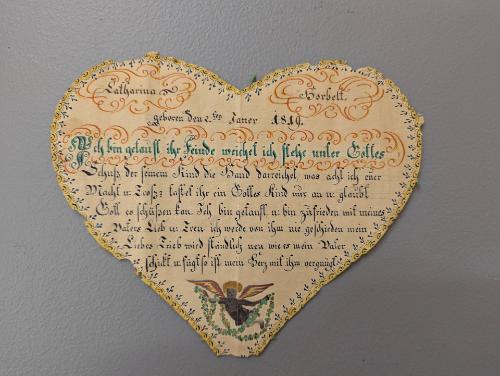 Catharina Horbelt
geboren den 2ten Janer 1819.
Ich bin getauft ihr Feinde weichet ich stehe unter Gottes
Schutz, der seinem Kind die Hand darreichet, was acht ich eure
Macht u. Trotz: tastet ihr ein Gottes Kind nur an u: glaubt
Gott es schützen kan. Ich bin getauft u. bin zufrieden mit meines
Vaters Lieb u. Treu, ich werde von ihm nie geschieden mein
Liebes Trieb wird ständlich neu wie es mein Vater
schickt u. fügt so ist mein Herz mit ihm vergnügt.